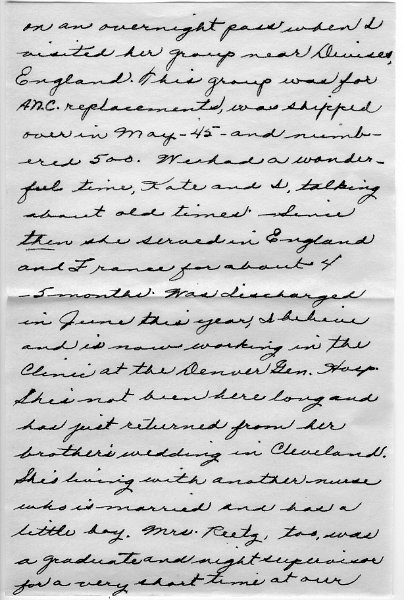 on an overnight pass when I
visited her group near Devises,
England. This group was for
A.N.C. replacements, was shipped
over in May-45-and numb-
ered 500. We had a wonder-
ful time, Kate and I, talking
about old times. Since
then she served in England
and France for about 4
-5 months. Was discharged
in June this year, I believe
and is now working in the
Clinic at the Denver Gen. Hosp.
She's not been here long and
has just returned from her
brother's wedding in Cleveland.
She's living with another nurse
who is married and has a
little boy. Mrs. Reetz, too, was
a graduate and night supervisor
for a very short time at our